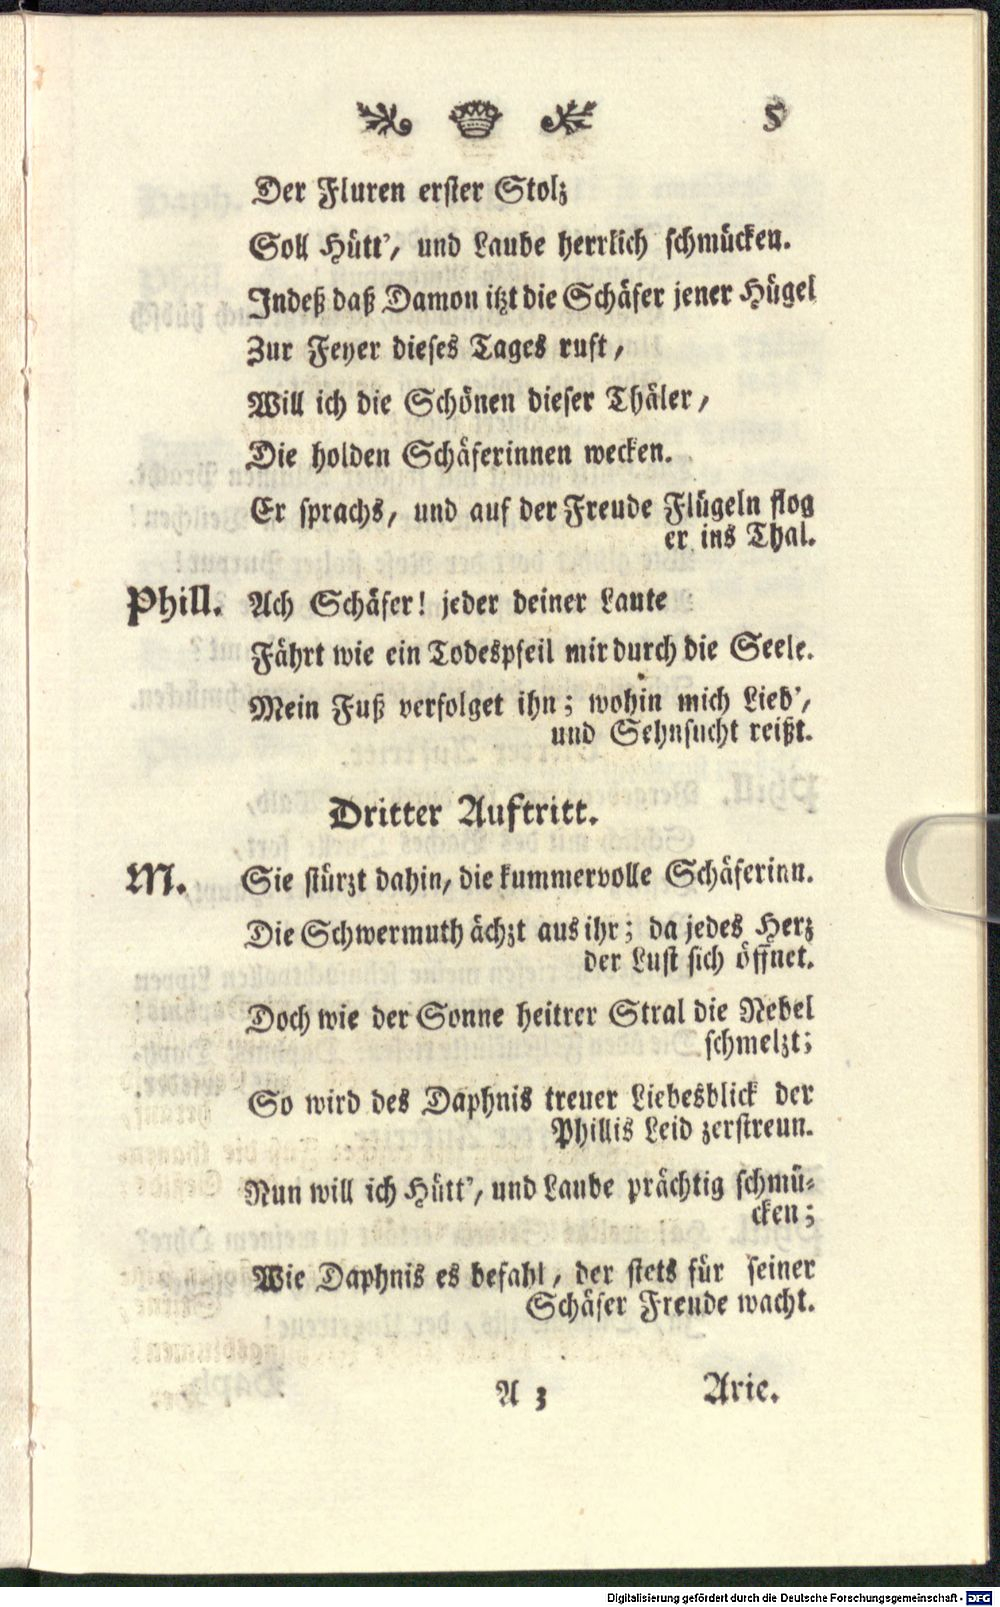 5
Der Fluren erster Stolz
Soll Hütt', und Laube herrlich schmücken.
Indeß daß Damon itzt die Schäfer jener Hügel
Zur Feyer dieses Tages ruft,
Will ich die Schönen dieser Thäler,
Die holden Schäferinnen wecken.
Er sprachs, und auf der Freude Flügeln flog
er ins Thal.
Phill. Ach Schäfer! jeder deiner Laute
Fährt wie ein Todespfeil mir durch die Seele.
Mein Fuß verfolget ihn; wohin mich Lieb',
und Sehnsucht reißt.
Dritter Auftritt.
M. Sie stürzt dahin, die kummervolle Schäferinn.
Die Schwermuth ächzt aus ihr; da jedes Herz
der Lust sich öffnet.
Doch wie der Sonne heitrer Stral die Nebel
schmelzt;
So wird des Daphnis treuer Liebesblick der
Phillis Leid zerstreun.
Nun will ich Hütt', und Laube prächtig schmü-
cken;
Wie Daphnis es befahl, der stets für seiner
Schäfer Freude wacht.
A 3 Arie.
Digitalisierung gefördert durch die Deutsche Forschungsgemeinschaft - DFG